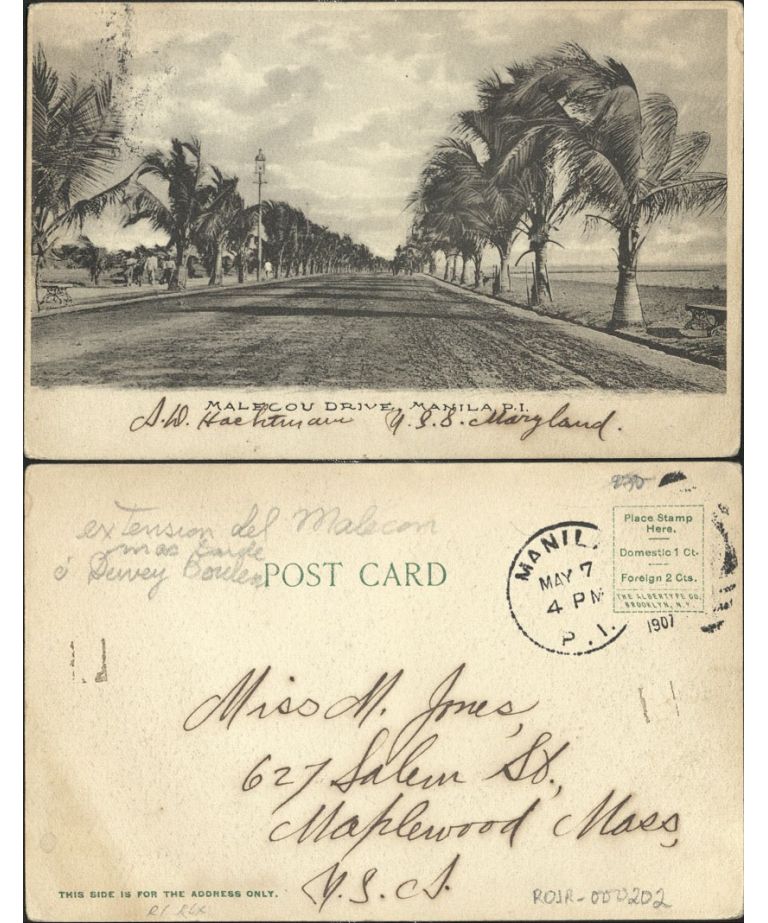 MALECOU DRIVE, MANILA, P.I.
A.W. Hachtmann U.S.S. Maryland.
230
extension del Malecon
mas tarde
ó Dewey Boulev
POST CARD
MANILA
MAY 7
4 PM
P.I.
1907
Place Stamp
Here.
Domestic 1 Ct.
Foreign 2 Cts.
THE ALBERTYPE CO.
BROOKLYN, N.Y.
Miss M. Jones,
627 Salem St.,
Maplewood Mass,
U.S.A.
THIS SIDE IS FOR THE ADDRESS ONLY.
ROJR-000202